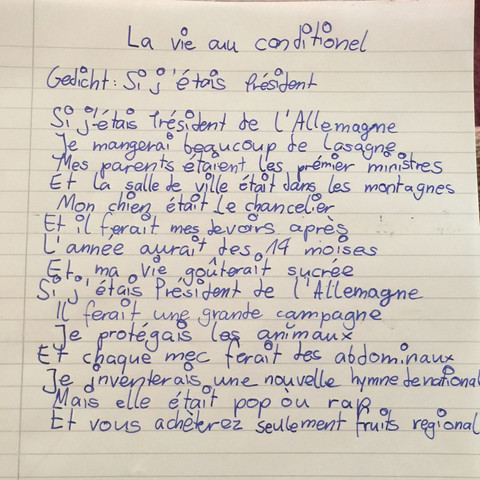 La vie au conditionel
Gedicht: Si j'étais Président
Si j'étais Président de l'Allemagne
Je mangerai beaucoup de lasagne
Mes parents étaient les prémier ministres
Et la salle de ville était dans les montagnes
Mon chien était le chancelier
Et il ferait mes devoirs après
L'année aurait des 14 moises
Et ma vie goûterait sucrée
Si j'étais Président de l'Allemagne
Il ferait une grande campagne
Je protégais les animaux
Et chaque mec ferait des abdominaux
Je inventerais une nouvelle hymne de national
Mais elle était pop òu rap
Et vous acheterez seulement fruits regional